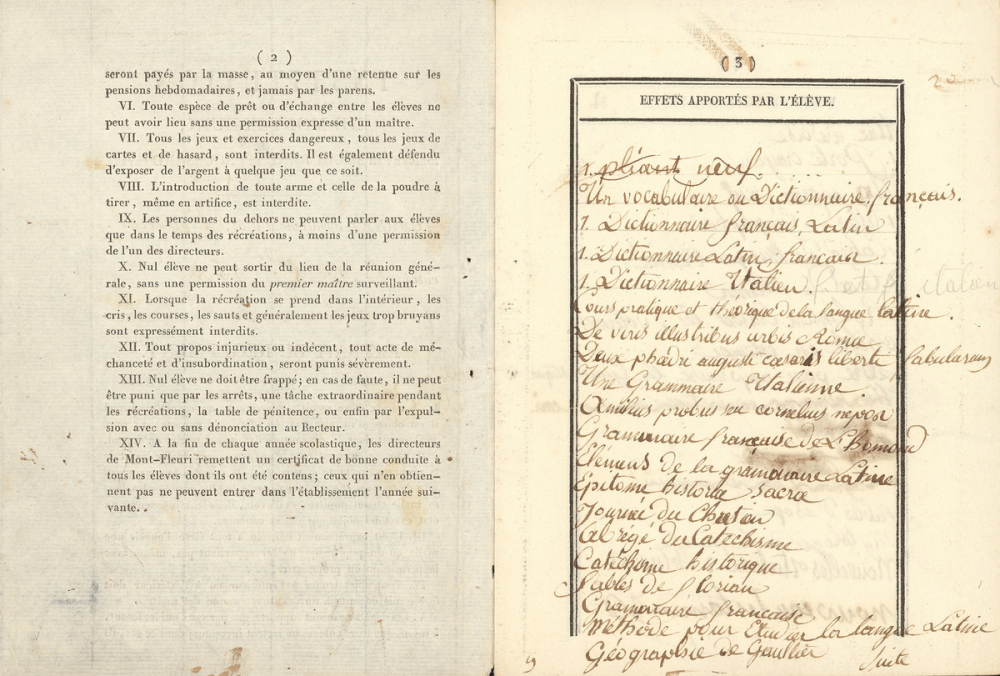 ( 2 )
seront payés par la masse, au moyen d'une retenue sur les
pensions hebdomadaires, et jamais par les parens.
VI. Toute espèce de prêt ou d'échange entre les élèves ne
peut avoir lieu sans une permission expresse d'un maître.
VII. Tous les jeux et exercices dangereux, tous les jeux de
cartes et de hasard, sont interdits. Il est également défendu
d'exposer de l'argent à quelque jeu que ce soit.
VIII. L'introduction de toute arme et celle de la poudre à
tirer, même en artifice, est interdite.
IX. Les personnes du dehors ne peuvent parler aux élèves
que dans le temps des récréations, à moins d'une permission
de l'un des directeurs.
X. Nul élève ne peut sortir du lieu de la réunion géné-
rale, sans une permission du premier maître surveillant.
XI. Lorsque la récréation se prend dans l'intérieur, les
cris, les courses, les sauts et généralement les jeux trop bruyans
sont expressément interdits.
XII. Tout propos injurieux ou indécent, tout acte de mé-
chanceté et d'insubordination, seront punis sévèrement.
XIII. Nul élève ne doit être frappé; en cas de faute, il ne peut
être puni que par les arrêts, une tâche extraordinaire pendant
les récréations, la table de pénitence, ou enfin par l'expul-
sion avec ou sans dénonciation au Recteur.
XIV. A la fin de chaque année scolastique, les directeurs
de Mont-Fleuri remettent un certificat de bonne conduite à
tous les élèves dont ils ont été contens; ceux qui n'en obtien-
nent pas ne peuvent entrer dans l'établissement l'année sui-
vante.
( 3 )
EFFETS APPORTÉS PAR L'ÉLÈVE.
1. pliant neuf.
Un vocabulaire ou Dictionnaire français.
1. Dictionnaire français, Latin
1. Dictionnaire Latin, français.
1. Dictionnaire Italien.
Cours pratique et théorique de la langue latine.
De viris illustribus urbis Romæ
Deux phædri auguste cæsaris liberti fabularum
Une Grammaire Italienne.
Æmilius probus seu cornelius nepos
Grammaire française de L'Homond
Elémens de la grammaire Latine
Epitome historiæ sacræ
Journée du Chretien
Abrégé du Catechisme
Catéchisme historique
Fables de florian
Grammaire française
Méthode pour Etudier la langue Latine
Géographie de Gaultier
Suite